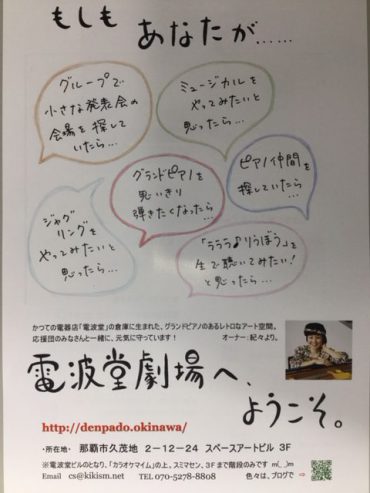 もしも あなたが……
グループで
小さな発表会の
会場を探して
いたら…
ミュージカルを
やってみたいと
思ったら…
グランドピアノを
思いきり
弾きたくなったら…
ピアノ仲間を
探していたら…
ジャグ
リングを
やってみたいと
思ったら…
「ラララ♪りうぼう」を
生で聴いてみたい!
と思ったら…
かつての電器店「電波堂」の倉庫に生まれた、グランドピアノのあるレトロなアート空間。
応援団のみなさんと一緒に、元気に守っています!
オーナー:紀々より。
電波堂劇場へ、
ようこそ。
http://denpado.okinawa/
・所在地・ 那覇市久茂地 2-12-24 スペースアートビル 3F
※電波堂ビルのとなり、「カラオケマイム」の上、スミマセン、3Fまで階段のみです m(_ _)m
Email cs@kikism.net TEL 070-5278-8808 色々は、ブログで